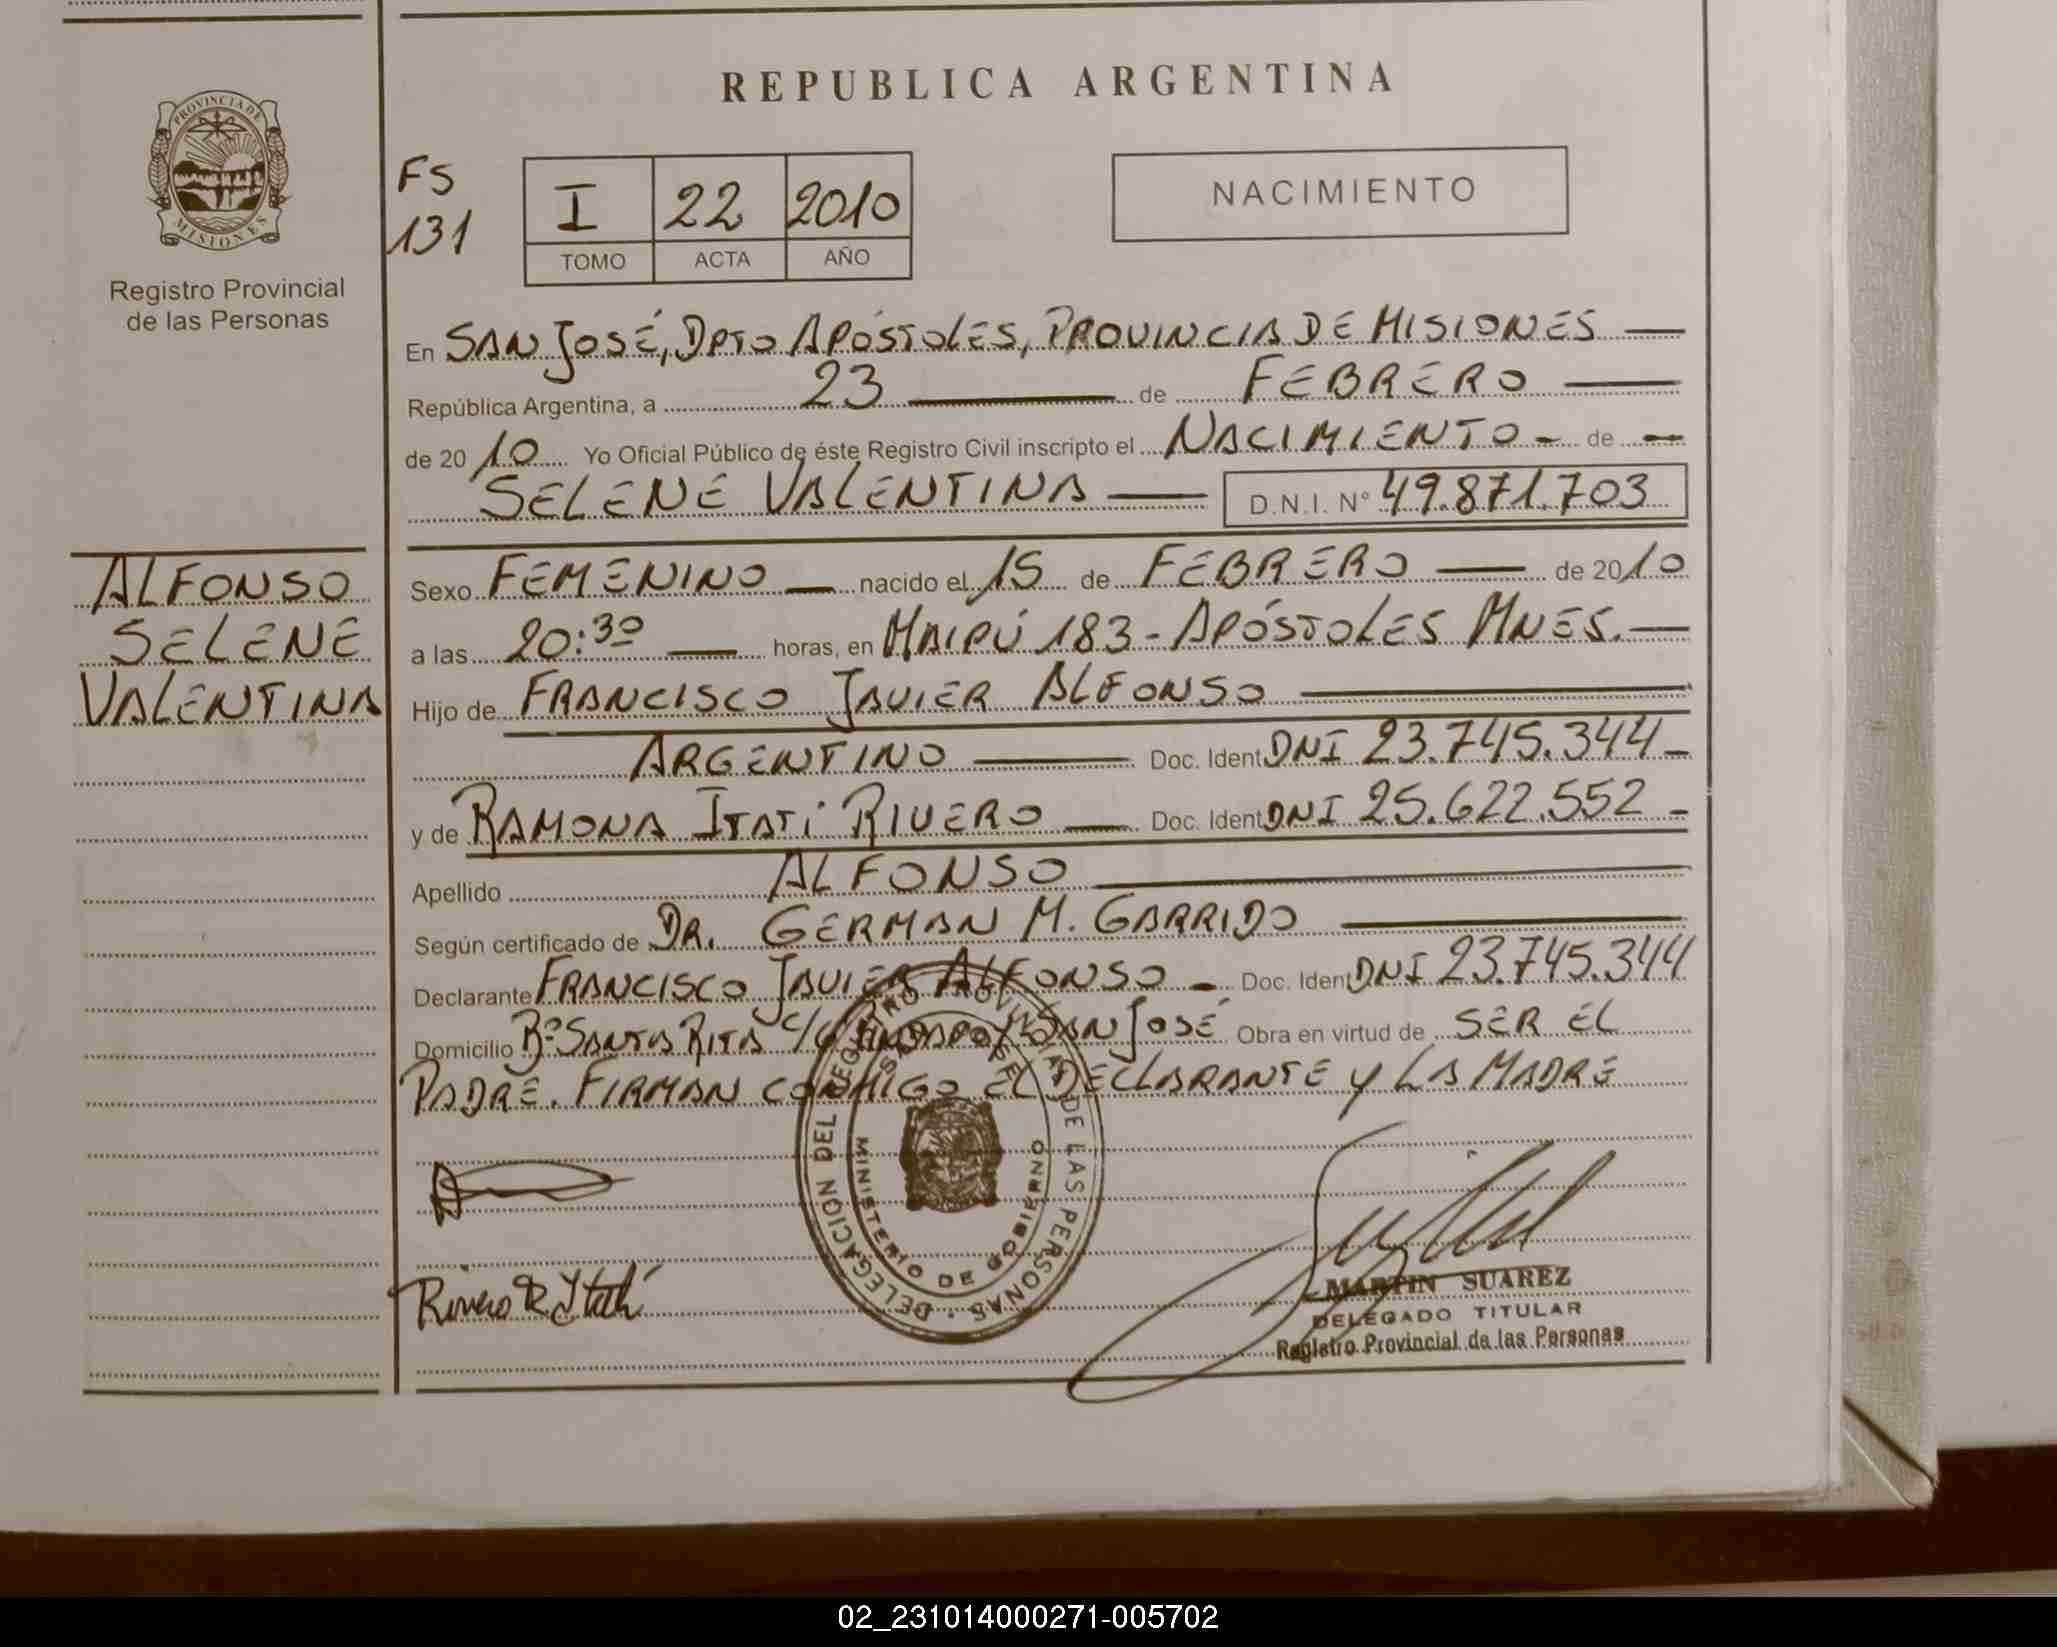 REPUBLICA ARGENTINA
PROVINCIA DE MISIONES
Registro Provincial
de las Personas
FS
131
I 22 2010
TOMO ACTA AÑO
NACIMIENTO
En SAN JOSÉ, DPTO APÓSTOLES, PROVINCIA DE MISIONES
República Argentina, a 23 de FEBRERO
de 2010 Yo Oficial Público de éste Registro Civil inscripto el NACIMIENTO - de -
SELENE VALENTINA D.N.I. N° 49.871.703
ALFONSO
SELENE
VALENTINA
Sexo FEMENINO nacido el 15 de FEBRERO de 2010
a las 20:30 horas, en MAIPÚ 183 - APÓSTOLES MNES.
Hijo de FRANCISCO JAVIER ALFONSO
ARGENTINO Doc. Ident DNI 23.745.344 -
y de RAMONA ITATÍ RIVERO Doc. Ident DNI 25.622.552 -
Apellido ALFONSO
Según certificado de DR. GERMAN M. GARRIDO
Declarante FRANCISCO JAVIER ALFONSO - Doc. Ident DNI 23.745.344
Domicilio Bº SANTA RITA SAN JOSÉ Obra en virtud de SER EL
PADRE. FIRMAN CONMIGO EL DECLARANTE Y LA MADRE
DELEGACION DEL REGISTRO PROVINCIAL DE LAS PERSONAS
SAN JOSE
MINISTERIO DE GOBIERNO
Rivero R Itatí
MARTIN SUAREZ
DELEGADO TITULAR
Registro Provincial de las Personas
02_231014000271-005702